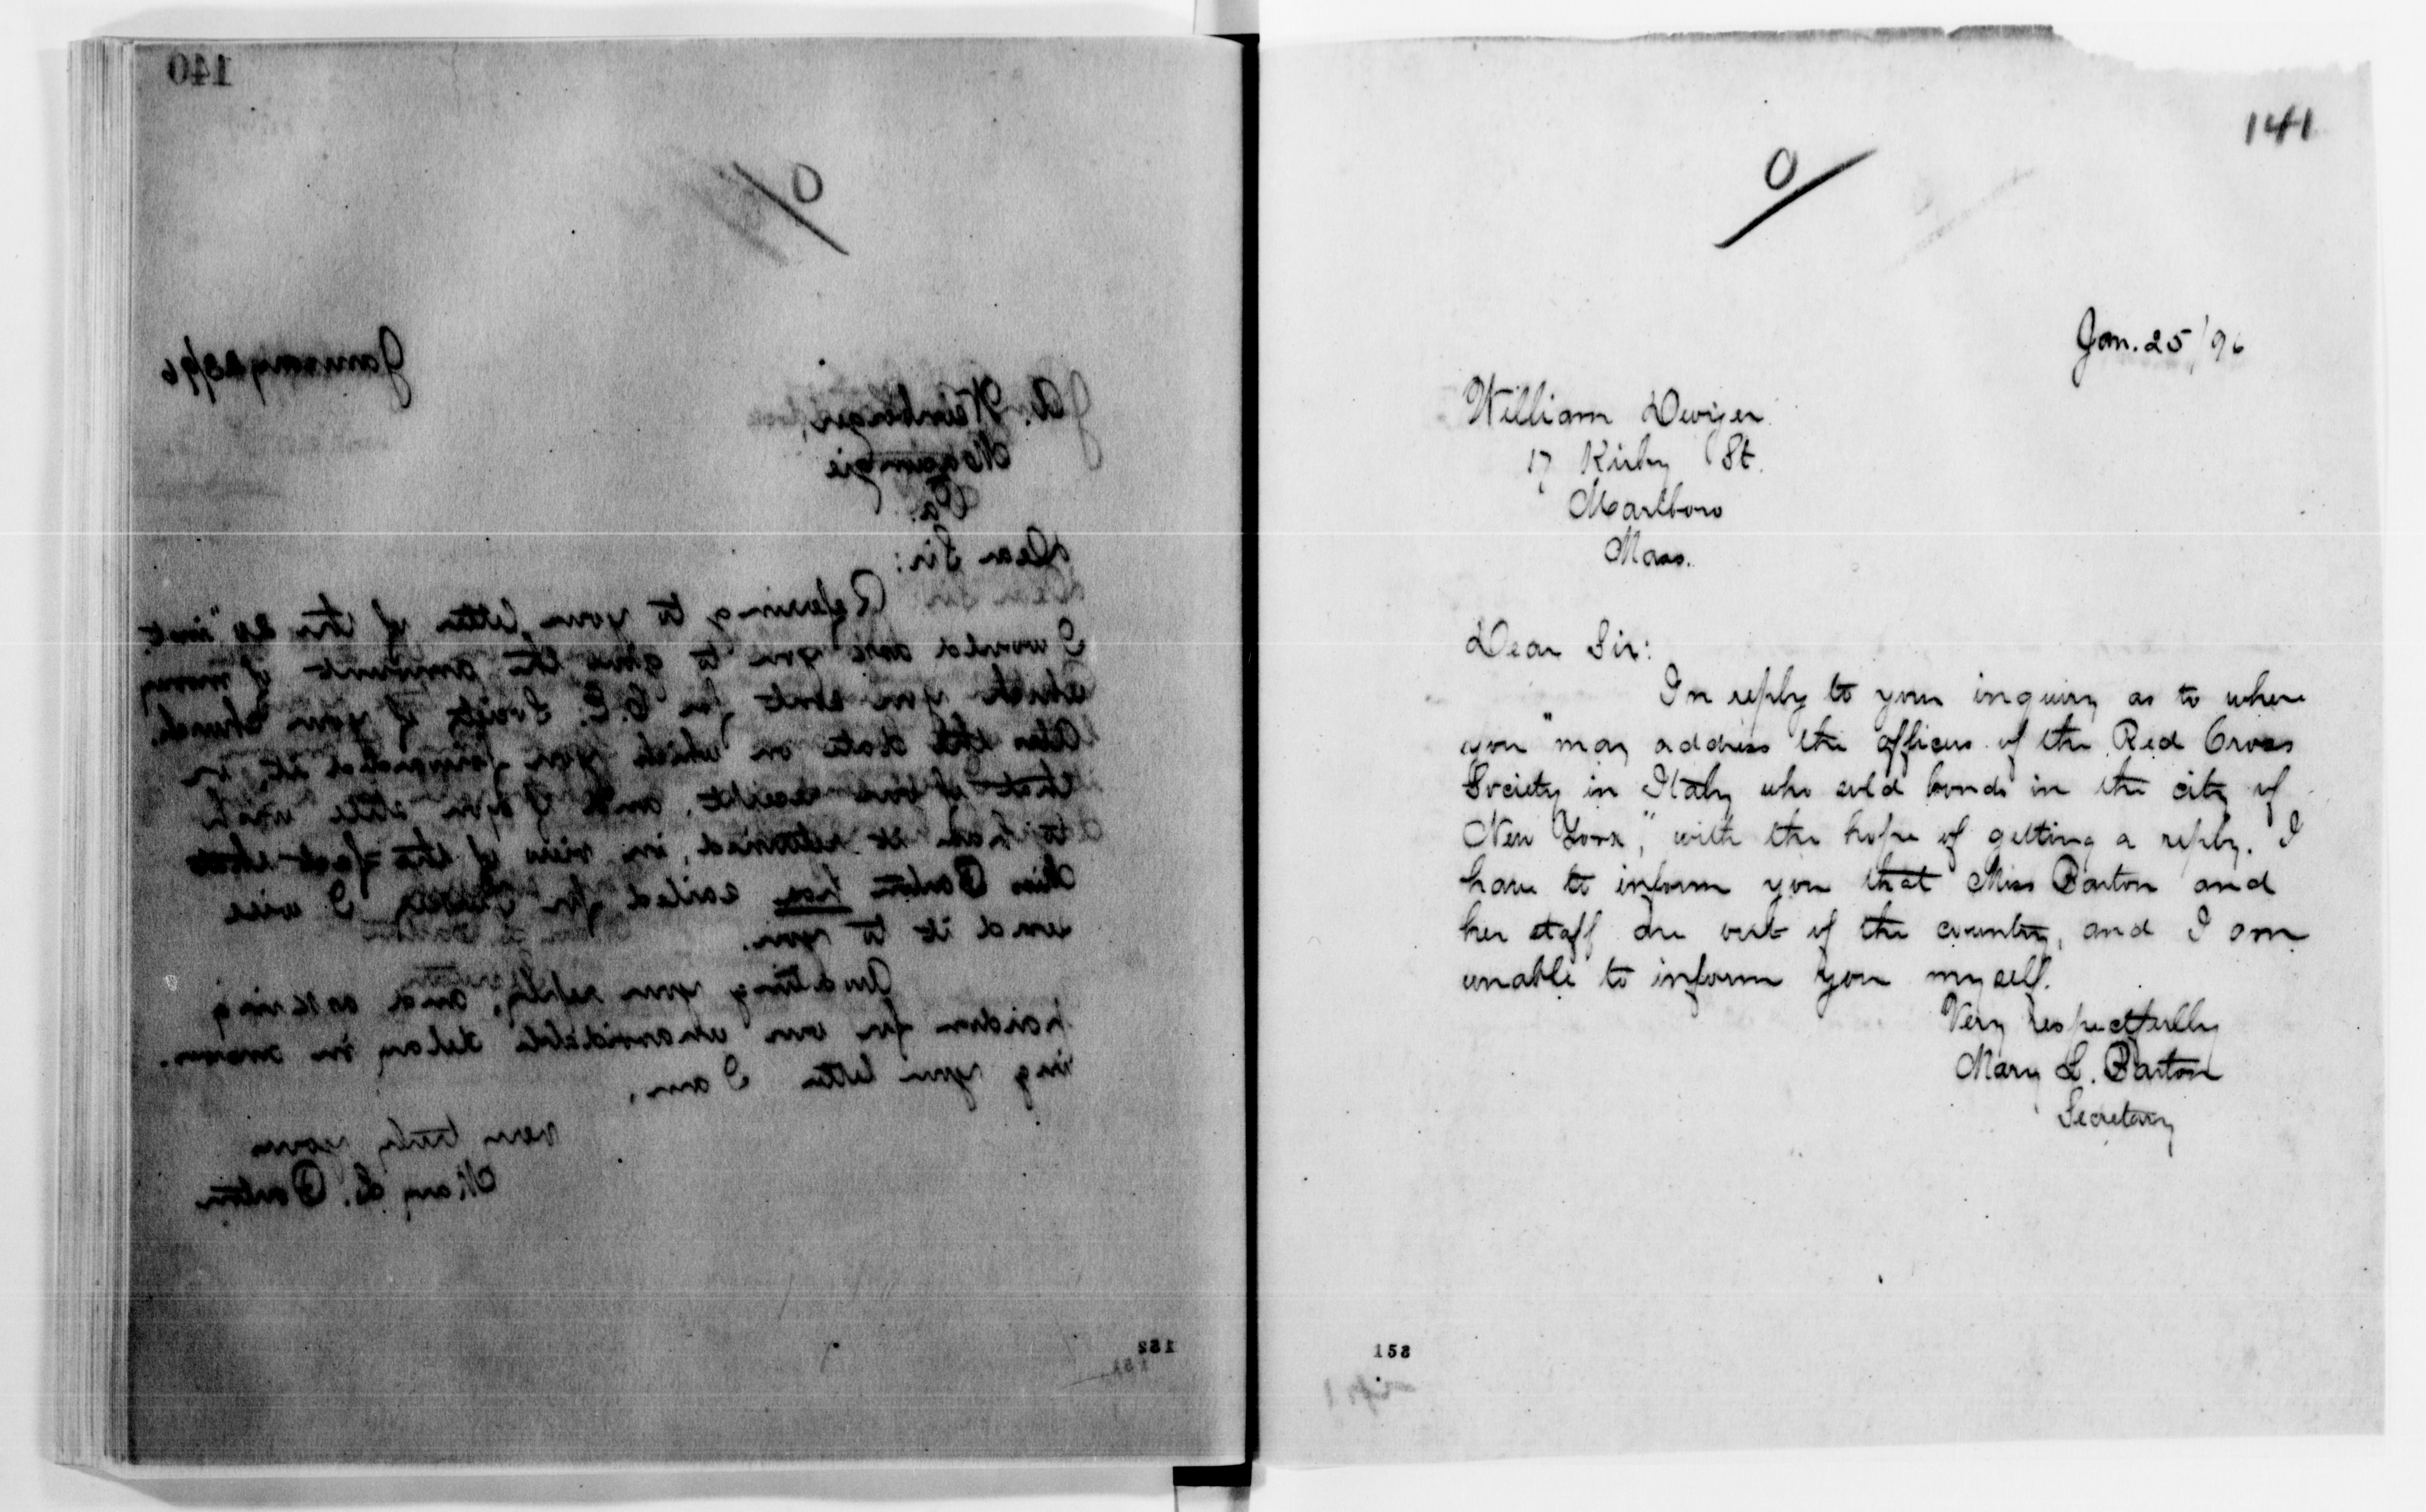 140
O
January 23/96
J. A. Weinberger,
Pa.
Dear Sir:
Referring to your letter of the 20" inst.
I would ask you to give the amount of money
which you sent for C. E. Society of your church.
Also the date on which you forwarded it, or
that of our receipt, and if you still wish
to have it returned, in view of the fact that
Miss Barton has sailed for I will
send it to you.
Awaiting your reply, and asking
pardon for our unavoidable delay in answer-
ing your letter I am,
very truly yours
Mary L. Barton
152
151
141
O
Jan. 25/96
William Dwyer
17 Kirby St.
Marlboro
Mass.
Dear Sir:
In reply to your inquiry as to where
you "may address the officers of the Red Cross
Society in Italy who sold bonds in the city of
New York," with the hope of getting a reply. I
have to inform you that Miss Barton and
her staff are out of the country, and I am
unable to inform you myself.
Very respectfully
Mary L. Barton
Secretary
153